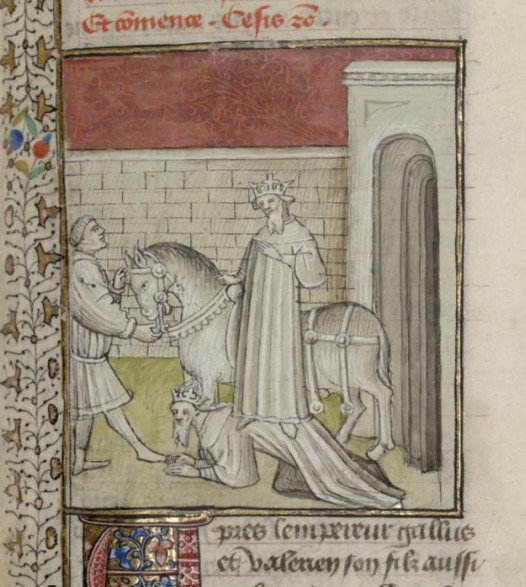 Et cõmence. Cesis
pres lempereur gallus
et valerien son filz aussi